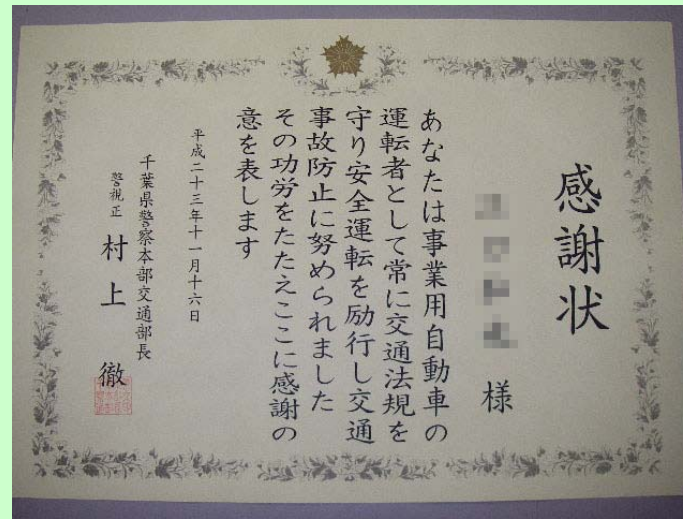 感謝状
様
あなたは事業用自動車の
運転者として常に交通法規を
守り安全運転を励行し交通
事故防止に努められました
その功労をたたえここに感謝の
意を表します
平成二十三年十一月十六日
千葉県警察本部交通部長
警視正 村上 徹